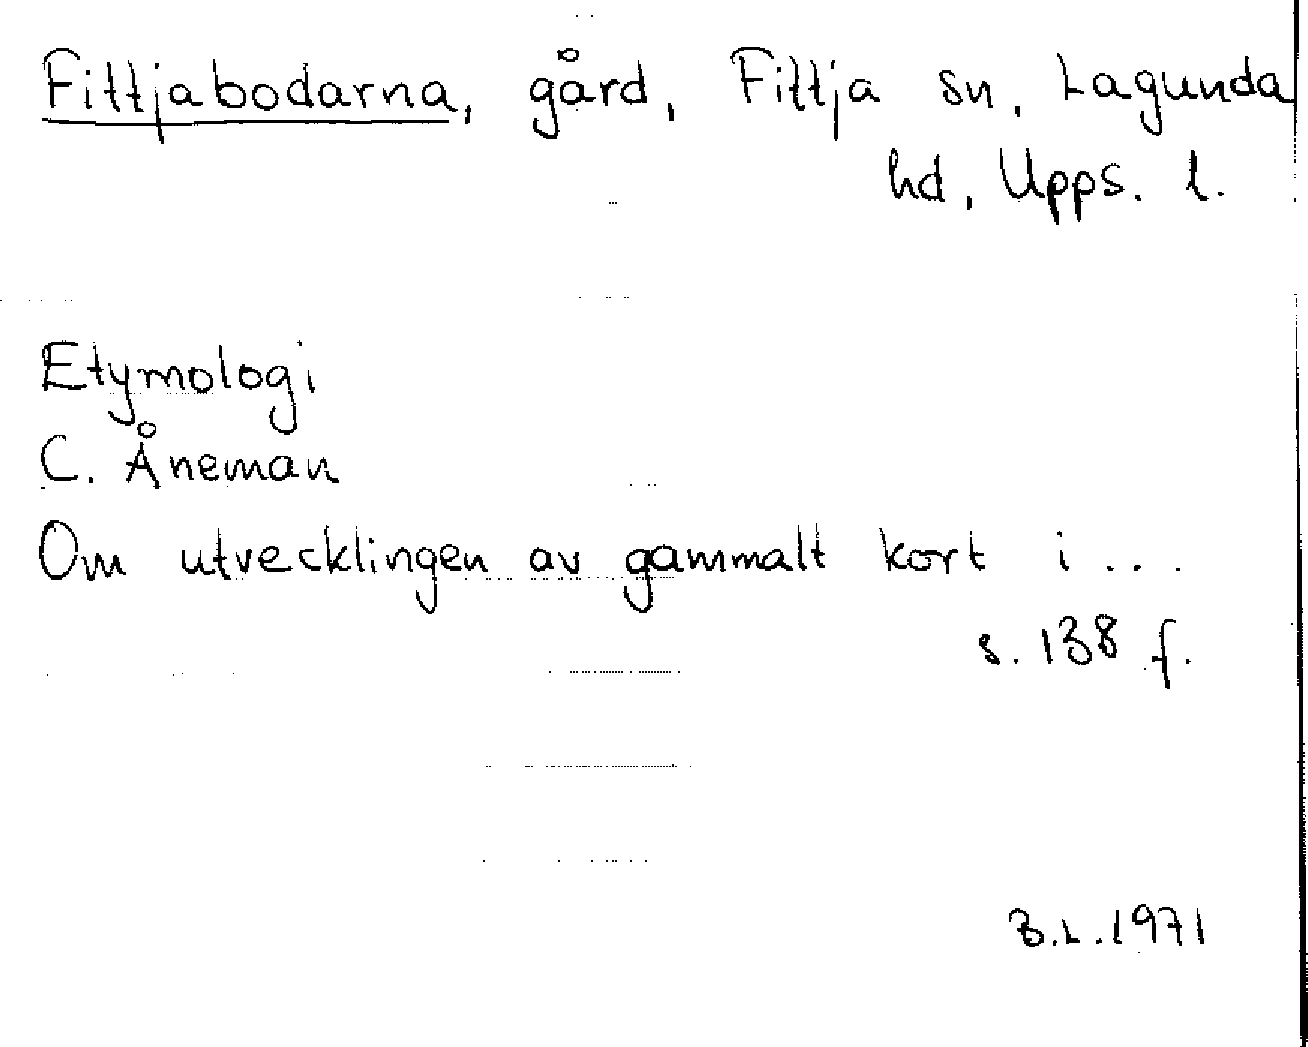 Fittjabodarna, gård, Fittja sn, Lagunda
hd, Upps. l.
Etymologi
C. Åneman
Om utvecklingen av gammalt kort i...
s. 138 f.
B.L. 1971